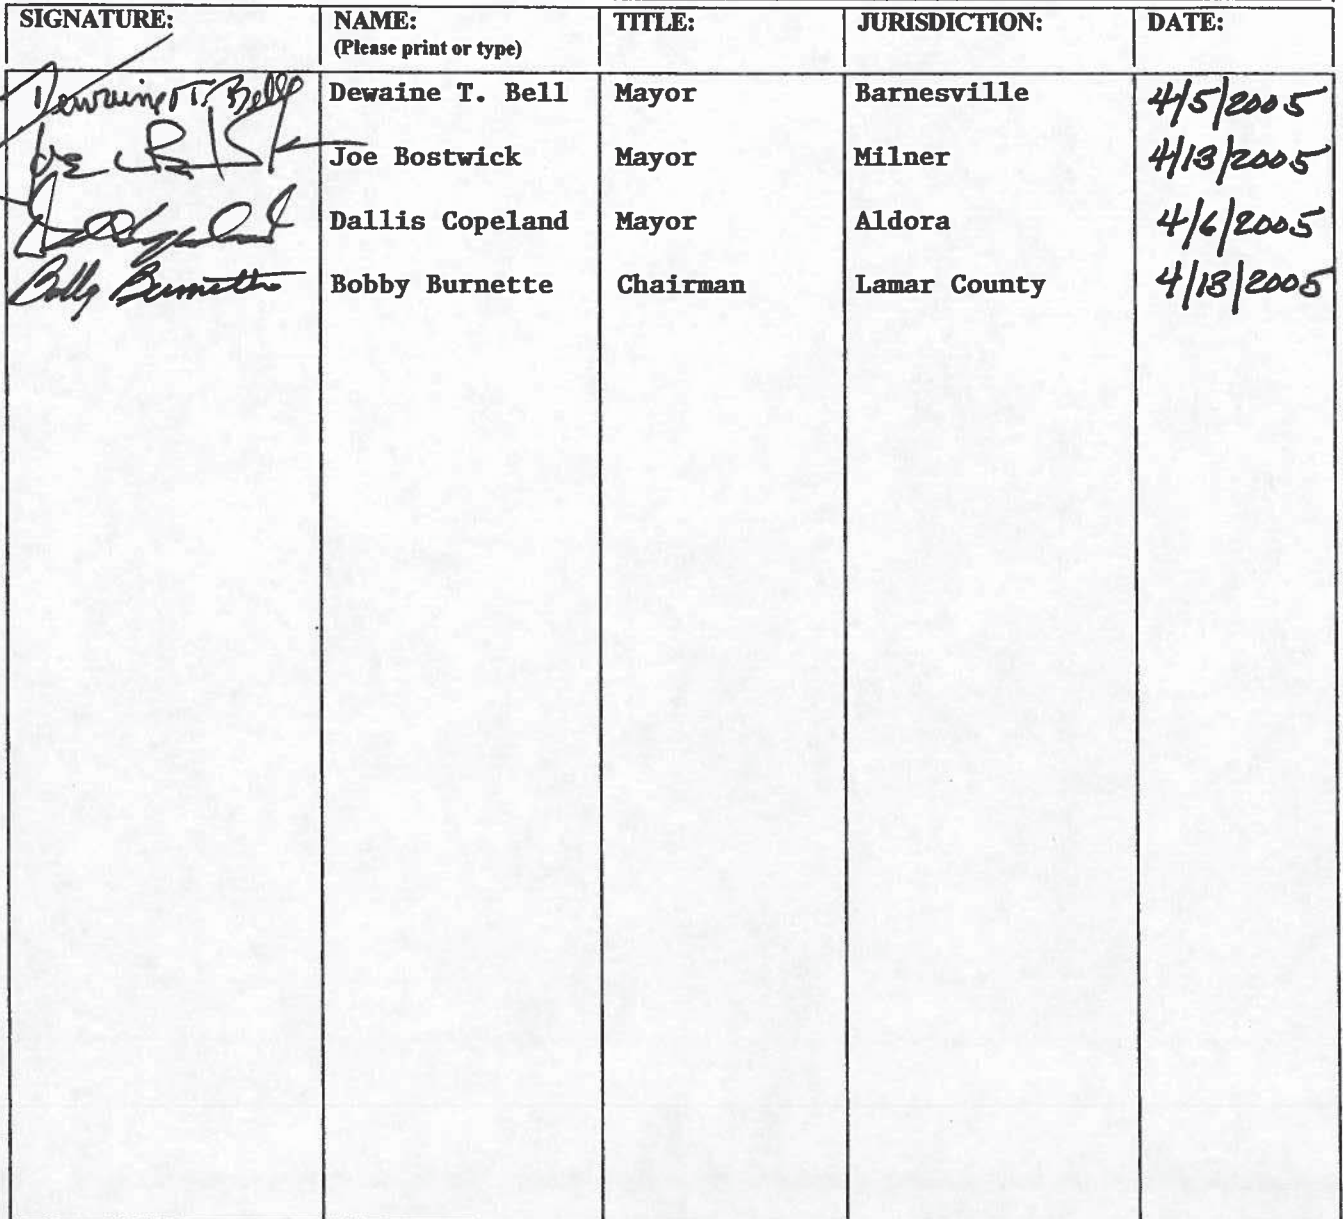 SIGNATURE: NAME: TITLE: JURISDICTION: DATE:
(Please print or type)
Dewaine T. Bell Dewaine T. Bell Mayor Barnesville 4/5/2005
Joe Bostwick Mayor Milner 4/13/2005
Dallis Copeland Mayor Aldora 4/6/2005
Bobby Burnette Bobby Burnette Chairman Lamar County 4/13/2005